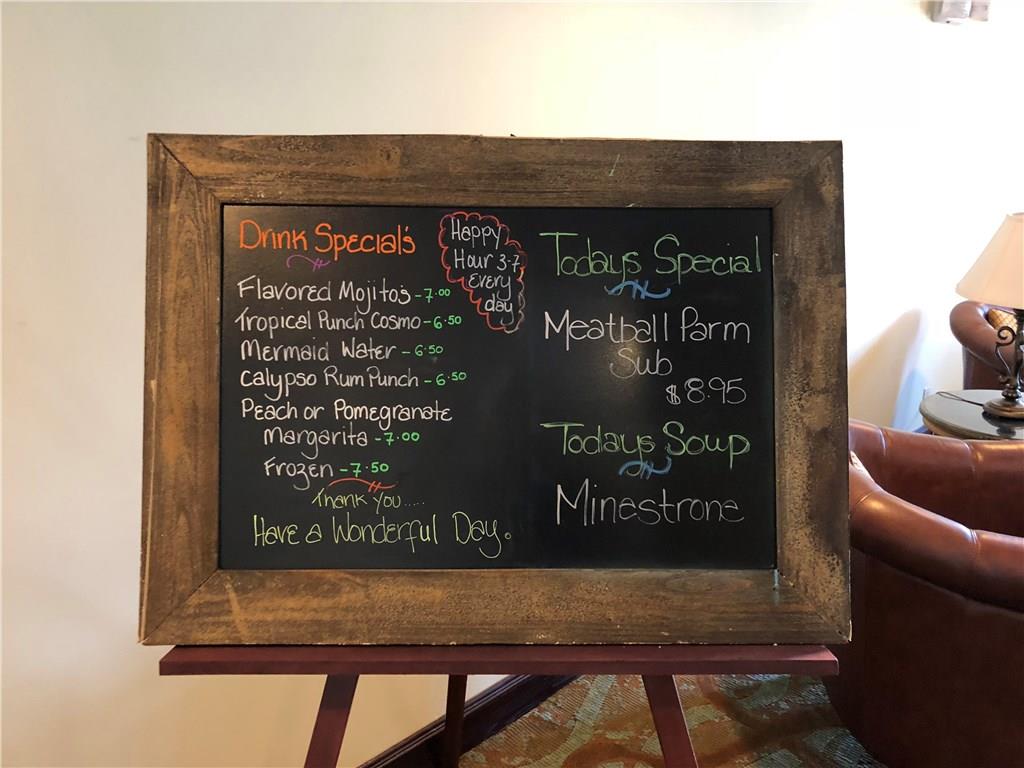 Drink Special's
Happy
Hour 3-7
Every
day
Flavored Mojito's - 7.00
Tropical Punch Cosmo - 6.50
Mermaid Water - 6.50
Calypso Rum Punch - 6.50
Peach or Pomegranate
Margarita - 7.00
Frozen - 7.50
Thank you.....
Have a Wonderful Day.
Todays Special
Meatball Parm
Sub
$8.95
Todays Soup
Minestrone